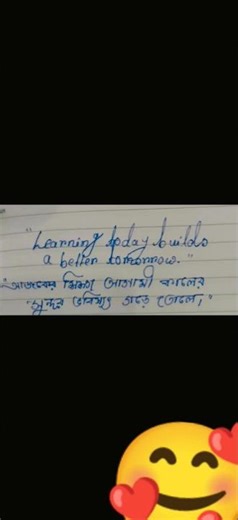 "Learning today builds
a better tomorrow."
"আজকের শিক্ষা আগামী কালের
সুন্দর ভবিষ্যৎ গড়ে তোলে।"